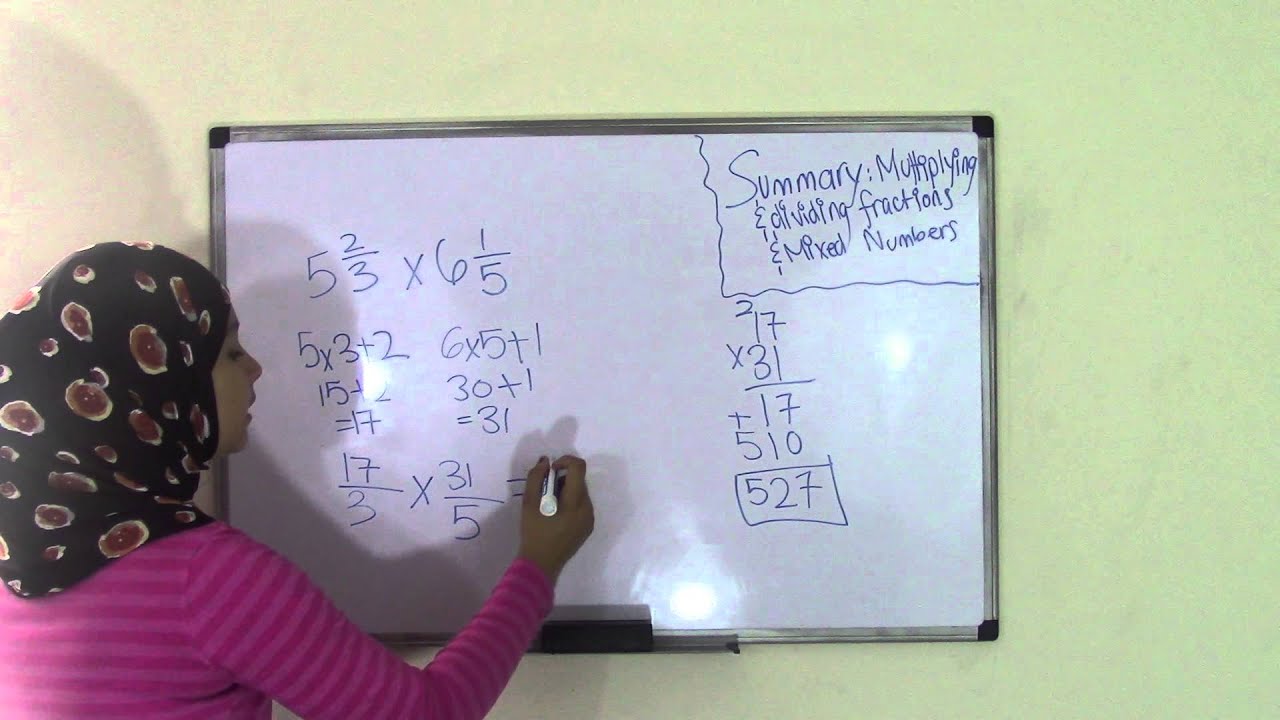 Summary: Multiplying
& dividing fractions
& Mixed Numbers
5 2/3 x 6 1/5
5x3+2 6x5+1
15+2 30+1
=17 =31
17/3 x 31/5 =
2
17
x31
+17
510
527